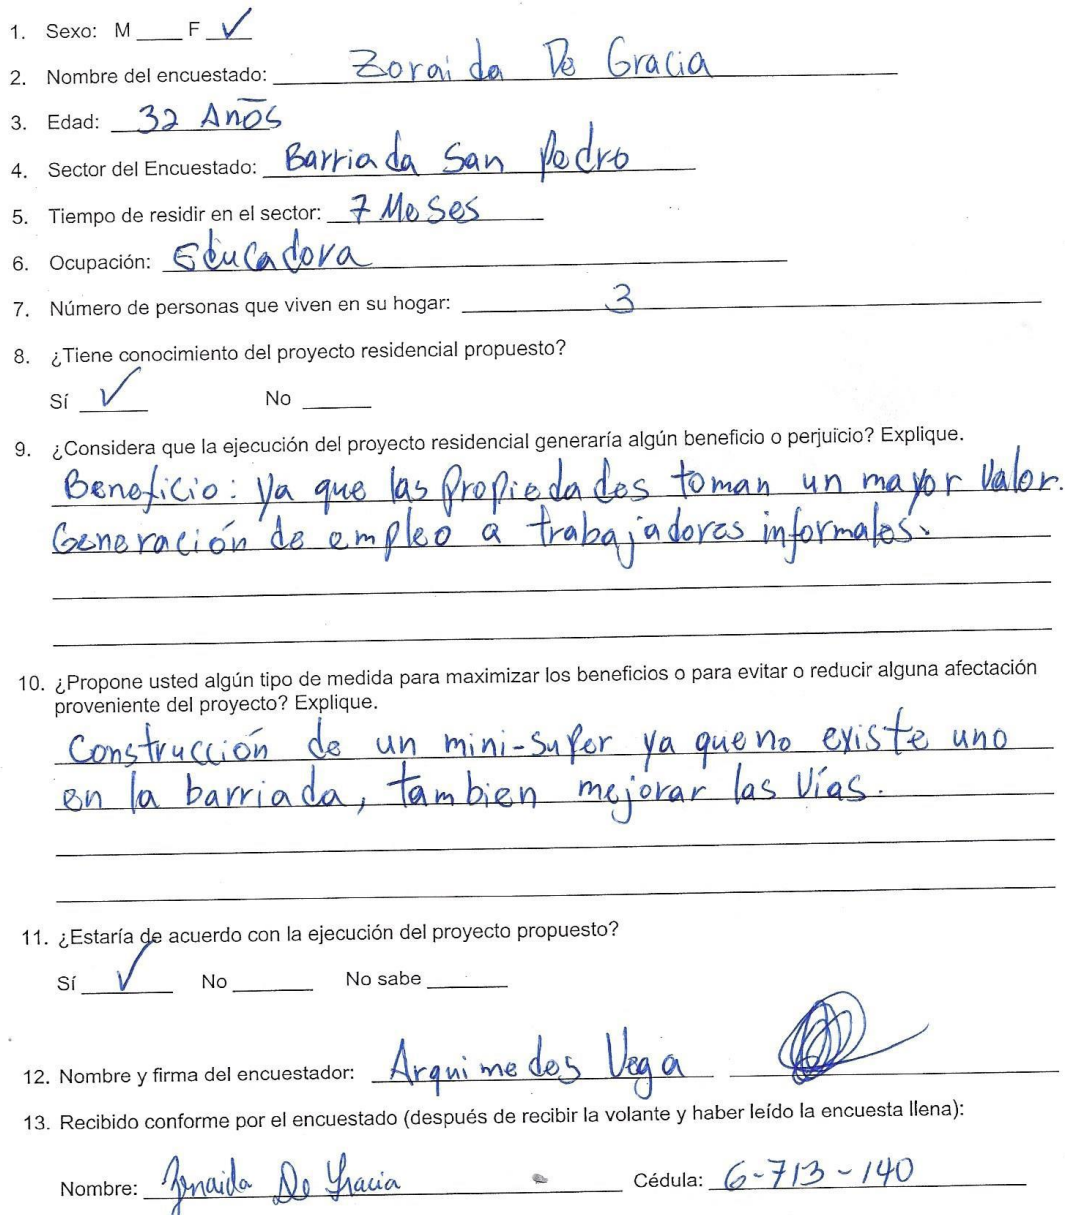 1. Sexo: M ____ F ✓
2. Nombre del encuestado: Zoraida De Gracia
3. Edad: 32 Años
4. Sector del Encuestado: Barriada San Pedro
5. Tiempo de residir en el sector: 7 Meses
6. Ocupación: Educadora
7. Número de personas que viven en su hogar: 3
8. ¿Tiene conocimiento del proyecto residencial propuesto?
Sí ✓ No ____
9. ¿Considera que la ejecución del proyecto residencial generaría algún beneficio o perjuicio? Explique.
Beneficio: Ya que las Propiedades toman un mayor Valor.
Generación de empleo a trabajadores informales.
10. ¿Propone usted algún tipo de medida para maximizar los beneficios o para evitar o reducir alguna afectación
proveniente del proyecto? Explique.
Construcción de un mini-super ya que no existe uno
en la barriada, tambien mejorar las Vías.
11. ¿Estaría de acuerdo con la ejecución del proyecto propuesto?
Sí ✓ No ____ No sabe ____
12. Nombre y firma del encuestador: Arquimedes Vega
13. Recibido conforme por el encuestado (después de recibir la volante y haber leído la encuesta llena):
Nombre: De Gracia Cédula: 6-713-140